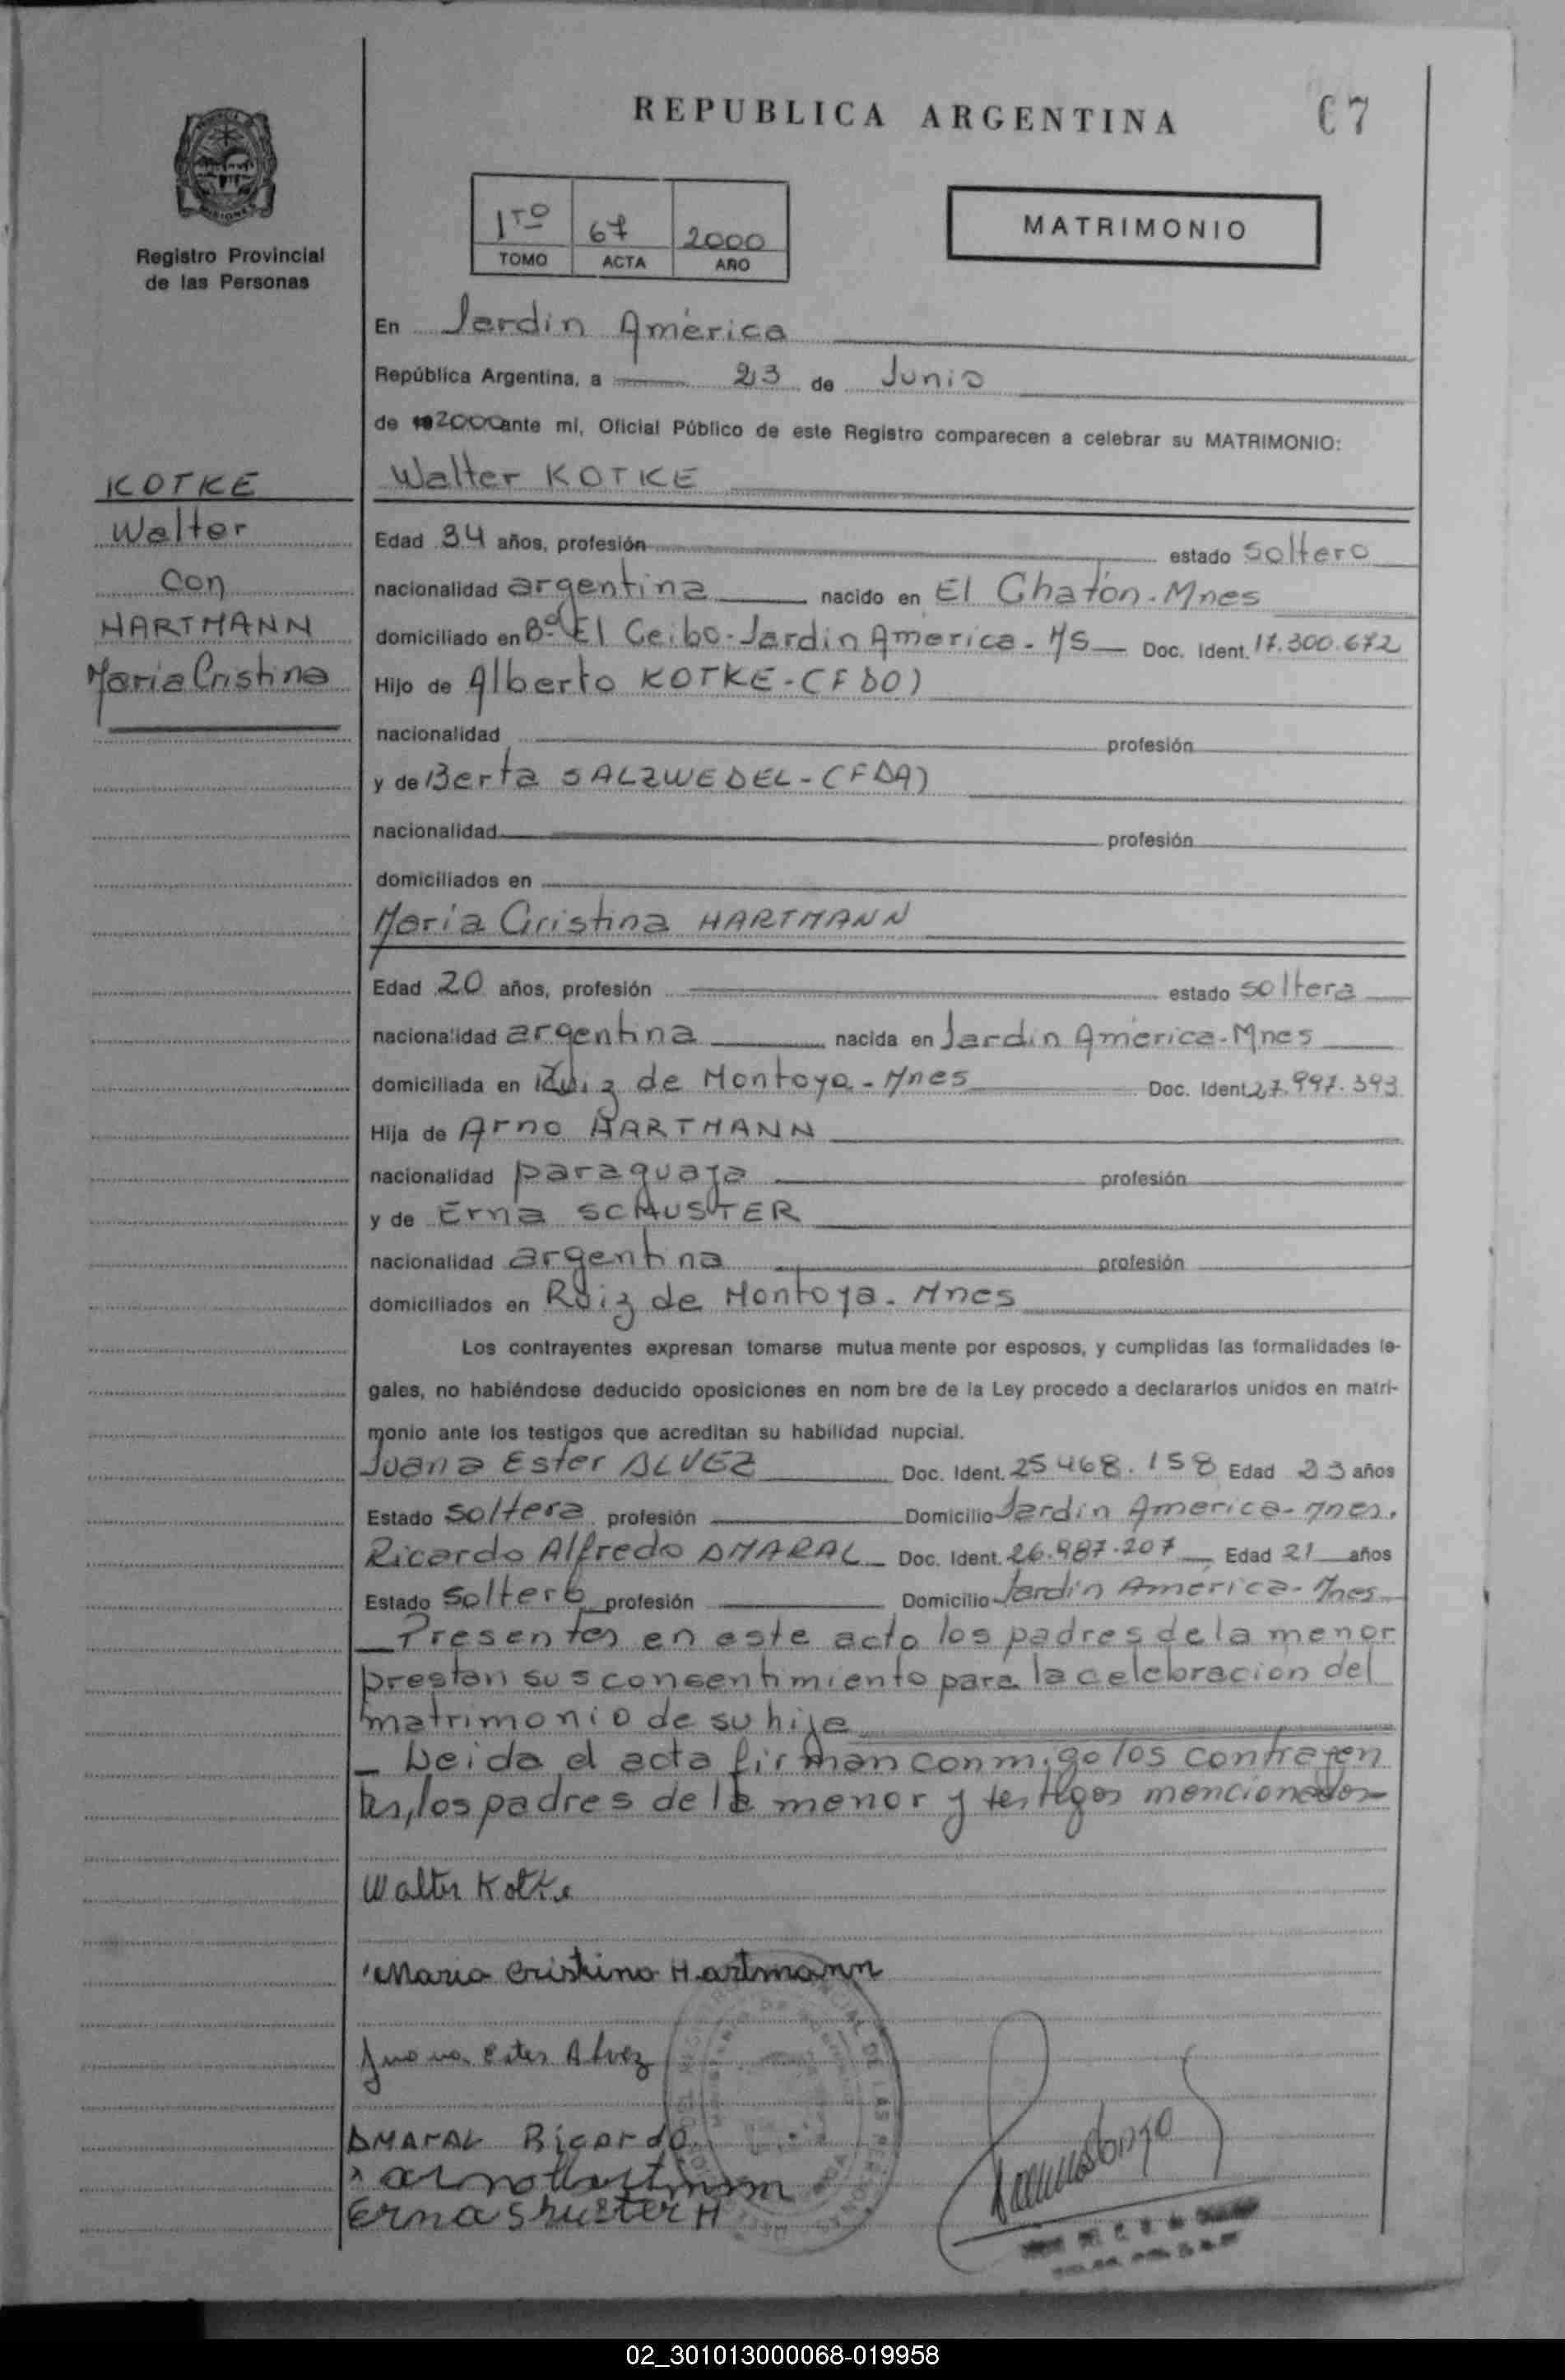 REPUBLICA ARGENTINA
67
Registro Provincial
de las Personas
1ro 67 2000
TOMO ACTA AÑO
MATRIMONIO
En Jardín América
República Argentina, a 23 de Junio
de 2000 ante mi, Oficial Público de este Registro comparecen a celebrar su MATRIMONIO:
KOTKE
Walter
con
HARTMANN
María Cristina
Walter KOTKE
Edad 34 años, profesión estado soltero
nacionalidad argentina nacido en El Chatón - Mnes
domiciliado en Bº El Ceibo - Jardín América - Ms Doc. Ident. 17.300.672
Hijo de Alberto KOTKE - (FDO)
nacionalidad profesión
y de Berta SALZWEDEL - (FDA)
nacionalidad profesión
domiciliados en
María Cristina HARTMANN
Edad 20 años, profesión estado soltera
nacionalidad argentina nacida en Jardín América - Mnes
domiciliada en Ruiz de Montoya - Mnes Doc. Ident. 27.997.393
Hija de Arno HARTMANN
nacionalidad paraguaya profesión
y de Erna SCHUSTER
nacionalidad argentina profesión
domiciliados en Ruiz de Montoya - Mnes
Los contrayentes expresan tomarse mutua mente por esposos, y cumplidas las formalidades le-
gales, no habiéndose deducido oposiciones en nom bre de la Ley procedo a declararlos unidos en matri-
monio ante los testigos que acreditan su habilidad nupcial.
Juana Ester ALVEZ Doc. Ident. 25.468.158 Edad 23 años
Estado soltera profesión Domicilio Jardín América - Mnes.
Ricardo Alfredo AMARAL Doc. Ident. 26.987.207 Edad 21 años
Estado soltero profesión Domicilio Jardín América - Mnes
Presentes en este acto los padres de la menor
prestan sus consentimiento para la celebración del
matrimonio de su hija
- Leida el acta firman conmigo los contrayen
tes, los padres de la menor y testigos mencionados
Walter Kotke
Maria Cristina Hartmann
Juana Ester Alvez
AMARAL Ricardo
Arno Hartmann
Erna Shuster H
02_301013000068-019958